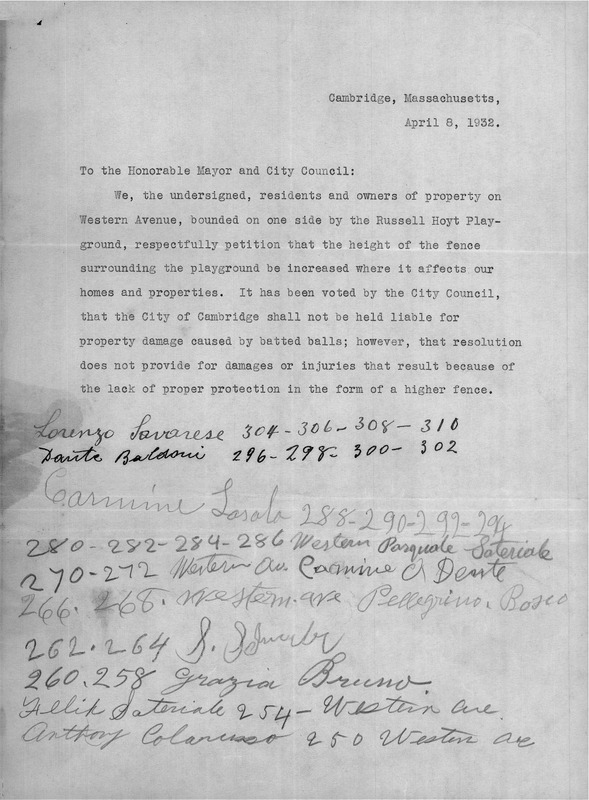 Cambridge, Massachusetts,
April 8, 1932.
To the Honorable Mayor and City Council:
We, the undersigned, residents and owners of property on
Western Avenue, bounded on one side by the Russell Hoyt Play-
ground, respectfully petition that the height of the fence
surrounding the playground be increased where it affects our
homes and properties. It has been voted by the City Council,
that the City of Cambridge shall not be held liable for
property damage caused by batted balls; however, that resolution
does not provide for damages or injuries that result because of
the lack of proper protection in the form of a higher fence.
Lorenzo Savarese 304-306-308-310
Dante Baldoni 296-298-300-302
Carmine 288-290-292-294
280-282-284-286 Western Pasquale Sateriale
270-272 Western Av. Carmine Dente
266. 268. Western. ave Pellegrino. Bosco
262.264 S.
260.258 Grazia Bruno
Sateriale 254-Western ave.
Anthony Colarusso 250 Western ave